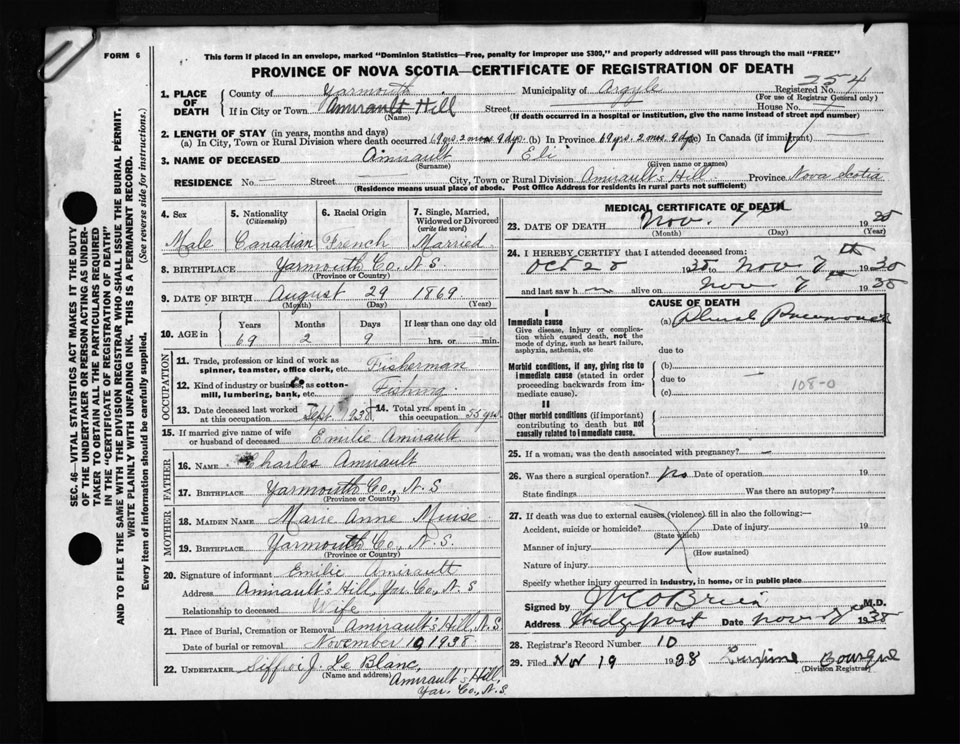 FORM 6
This form if placed in an envelope, marked "Dominion Statistics—Free, penalty for improper use $300," and properly addressed will pass through the mail "FREE"
PROVINCE OF NOVA SCOTIA—CERTIFICATE OF REGISTRATION OF DEATH
254
1. PLACE OF DEATH
County of Yarmouth Municipality of Argyle Registered No.
(For use of Registrar General only)
If in City or Town Amirault Hill Street House No.
(Name) (If death occurred in a hospital or institution, give the name instead of street and number)
2. LENGTH OF STAY (in years, months and days)
(a) In City, Town or Rural Division where death occurred 69 yrs. 2 mos. 9 dys. (b) In Province 69 yrs. 2 mos. 9 dys. (c) In Canada (if immigrant)
3. NAME OF DECEASED Amirault Eli
(Surname) (Given name or names)
RESIDENCE No. Street City, Town or Rural Division Amirault's Hill Province Nova Scotia
(Residence means usual place of abode. Post Office Address for residents in rural parts not sufficient)
4. Sex 5. Nationality (Citizenship) 6. Racial Origin 7. Single, Married, Widowed or Divorced (write the word)
Male Canadian French Married
8. BIRTHPLACE Yarmouth Co. N.S.
(Province or Country)
9. DATE OF BIRTH August 29 1869
(Month) (Day) (Year)
10. AGE in Years Months Days If less than one day
69 2 9 hrs. or min.
OCCUPATION
11. Trade, profession or kind of work as spinner, teamster, office clerk, etc. Fisherman
12. Kind of industry or business, as cotton-mill, lumbering, bank, etc. Fishing
13. Date deceased last worked at this occupation Sept. 1938 14. Total yrs. spent in this occupation 55 yrs.
15. If married give name of wife or husband of deceased Emilie Amirault
FATHER
16. NAME Charles Amirault
17. BIRTHPLACE Yarmouth Co., N.S
(Province or Country)
MOTHER
18. MAIDEN NAME Marie Anne Muise
19. BIRTHPLACE Yarmouth Co., N.S.
(Province or Country)
20. Signature of informant Emilie Amirault
Address Amirault's Hill, Yar. Co., N.S
Relationship to deceased Wife
21. Place of Burial, Cremation or Removal Amirault's Hill, N.S.
Date of burial or removal November 10, 1938
22. UNDERTAKER Siffroi J. Le Blanc,
(Name and address) Amirault's Hill,
Yar. Co., N.S.
MEDICAL CERTIFICATE OF DEATH
23. DATE OF DEATH Nov. 7th 1938
(Month) (Day) (Year)
24. I HEREBY CERTIFY that I attended deceased from:
Oct 28 1938 to Nov 7th 1938
and last saw h m alive on Nov 7th 1938
CAUSE OF DEATH
I
Immediate cause (a) Pneumonia
Give disease, injury or complication which caused death, not the mode of dying, such as heart failure, asphyxia, asthenia, etc
due to
Morbid conditions, if any, giving rise to immediate cause (stated in order proceeding backwards from immediate cause). (b)
due to
(c)
108-0
II
Other morbid conditions (if important) contributing to death but not causally related to immediate cause.
25. If a woman, was the death associated with pregnancy? —
26. Was there a surgical operation? No Date of operation 19
State findings Was there an autopsy?
27. If death was due to external causes (violence) fill in also the following:—
Accident, suicide or homicide? Date of injury 19
(State which)
Manner of injury
(How sustained)
Nature of injury
Specify whether injury occurred in industry, in home, or in public place
Signed by W C O'Brien M.D.
Address Wedgeport Date Nov 1938
28. Registrar's Record Number 10
29. Filed Nov 19 1938 Bourque
(Division Registrar)
SEC. 46—VITAL STATISTICS ACT MAKES IT THE DUTY
OF THE UNDERTAKER OR PERSON ACTING AS UNDER-
TAKER TO OBTAIN ALL THE PARTICULARS REQUIRED
IN THE "CERTIFICATE OF REGISTRATION OF DEATH"
AND TO FILE THE SAME WITH THE DIVISION REGISTRAR WHO SHALL ISSUE THE BURIAL PERMIT.
WRITE PLAINLY WITH UNFADING INK. THIS IS A PERMANENT RECORD.
Every item of information should be carefully supplied. (See reverse side for instructions.)